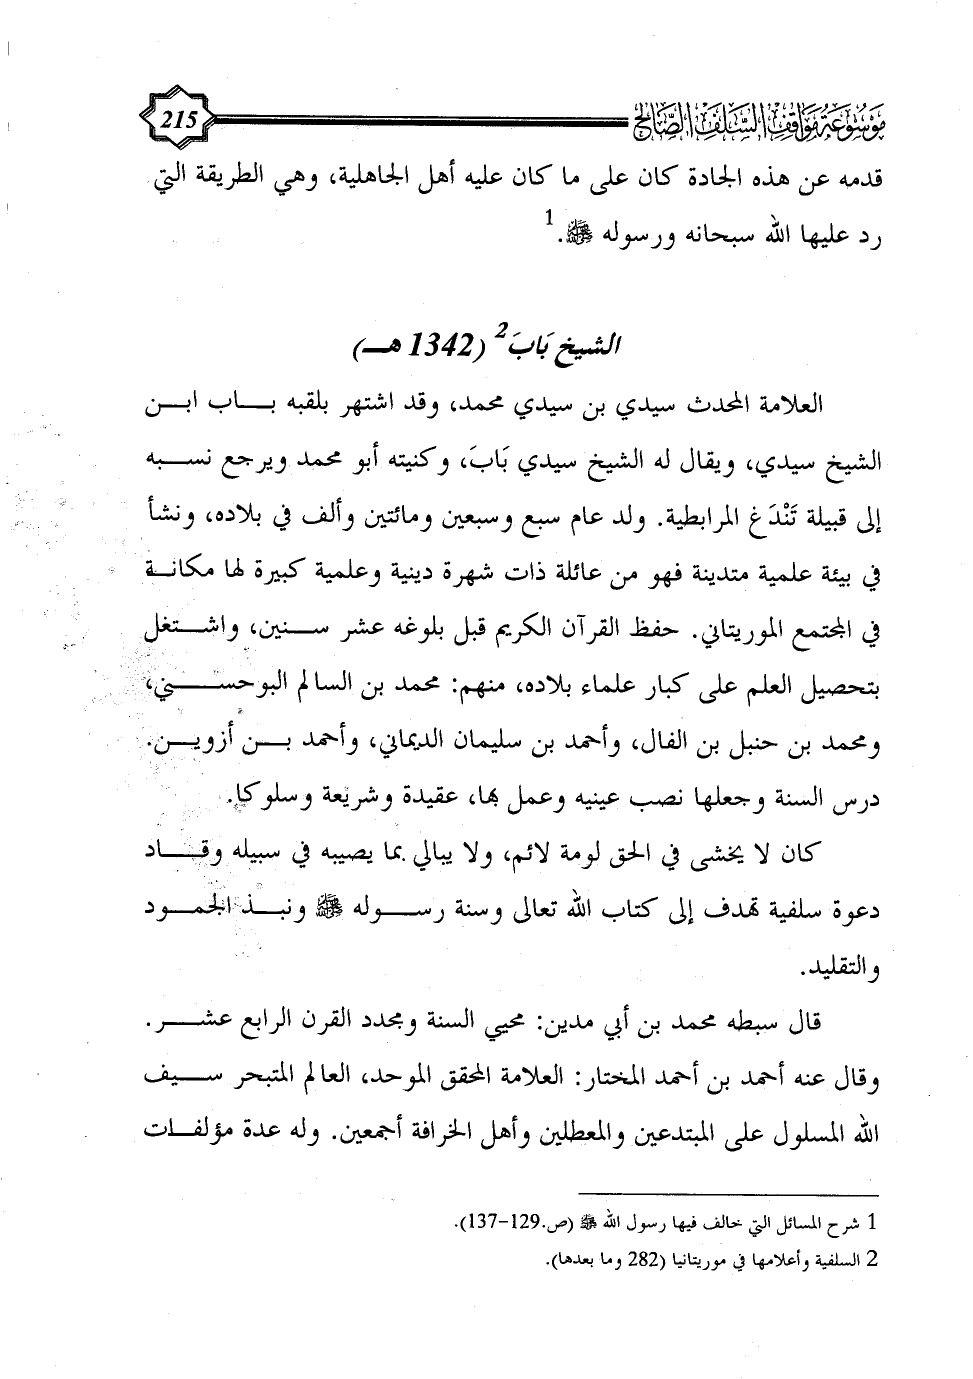 موسوعة مواقف السلف الصالح
215
قدمه عن هذه الجادة كان على ما كان عليه أهل الجاهلية، وهي الطريقة التي
رد عليها الله سبحانه ورسوله ﷺ.1
الشيخ بَابَ2 (1342 هـ)
العلامة المحدث سيدي بن سيدي محمد، وقد اشتهر بلقبه بـاب ابـن
الشيخ سيدي، ويقال له الشيخ سيدي بَابَ، وكنيته أبو محمد ويرجع نسـبه
إلى قبيلة تَنْدَغ المرابطية. ولد عام سبع وسبعين ومائتين وألف في بلاده، ونشأ
في بيئة علمية متدينة فهو من عائلة ذات شهرة دينية وعلمية كبيرة لها مكانـة
في المجتمع الموريتاني. حفظ القرآن الكريم قبل بلوغه عشر سـنين، واشـتغل
بتحصيل العلم على كبار علماء بلاده، منهم: محمد بن السالم البوحسـني،
ومحمد بن حنبل بن الفال، وأحمد بن سليمان الديماني، وأحمد بـن أزويـن.
درس السنة وجعلها نصب عينيه وعمل بها، عقيدة وشريعة وسلوكا.
كان لا يخشى في الحق لومة لائم، ولا يبالي بما يصيبه في سبيله وقـاد
دعوة سلفية تهدف إلى كتاب الله تعالى وسنة رسـوله ﷺ ونبـذ الجمـود
والتقليد.
قال سبطه محمد بن أبي مدين: محيي السنة ومجدد القرن الرابع عشـر.
وقال عنه أحمد بن أحمد المختار: العلامة المحقق الموحد، العالم المتبحر سـيف
الله المسلول على المبتدعين والمعطلين وأهل الخرافة أجمعين. وله عدة مؤلفـات
1 شرح المسائل التي خالف فيها رسول الله ﷺ (ص.129-137).
2 السلفية وأعلامها في موريتانيا (282 وما بعدها).